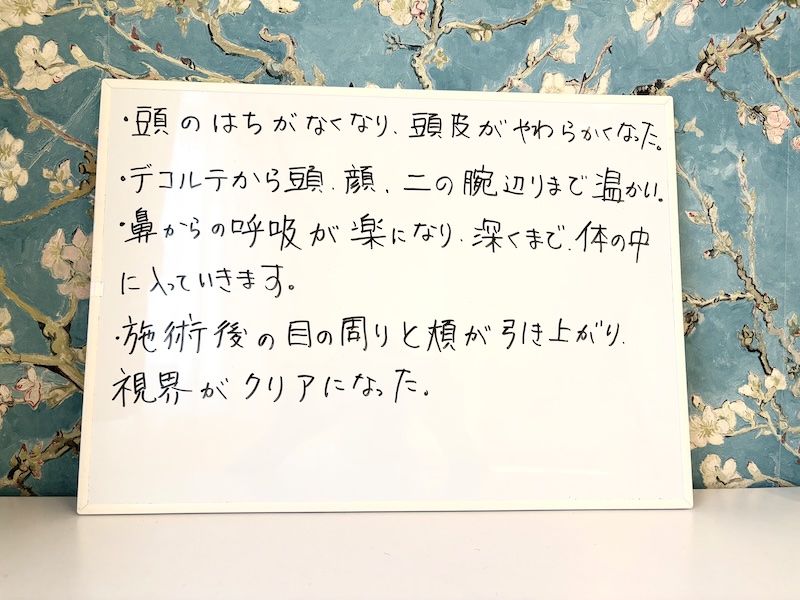 ・頭のはちがなくなり、頭皮がやわらかくなった。
・デコルテから頭、顔、二の腕辺りまで温かい。
・鼻からの呼吸が楽になり、深くまで、体の中
に入っていきます。
・施術後の目の周りと頬が引き上がり、
視界がクリアになった。